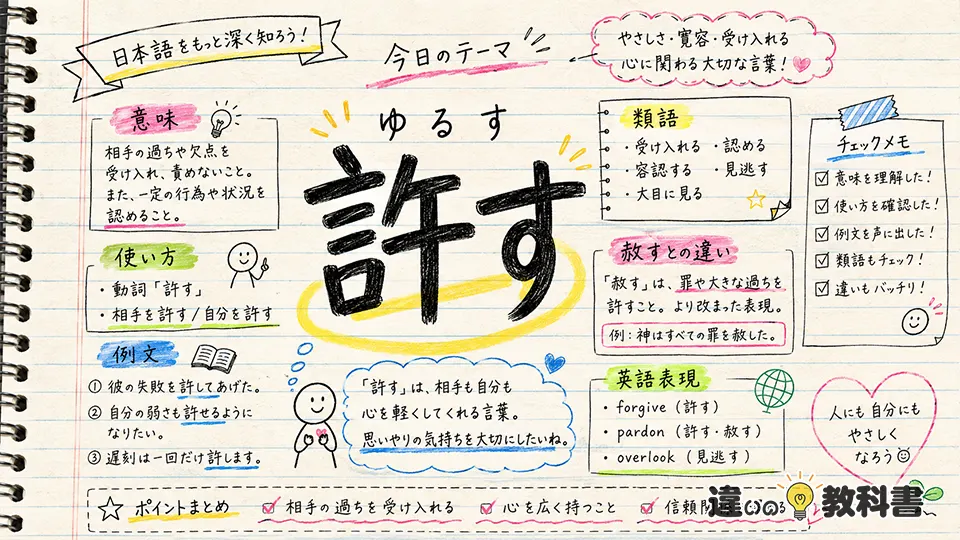 日本語をもっと深く知ろう!
今日のテーマ
やさしさ・寛容・受け入れる
心に関わる大切な言葉!
意味
相手の過ちや欠点を
受け入れ、責めないこと。
また、一定の行為や状況を
認めること。
使い方
・動詞「許す」
・相手を許す/自分を許す
例文
① 彼の失敗を許してあげた。
② 自分の弱さも許せるように
なりたい。
③ 遅刻は一回だけ許します。
ゆるす
許す
「許す」は、相手も自分も
心を軽くしてくれる言葉。
思いやりの気持ちを大切にしたいね。
類語
・受け入れる ・認める
・容認する ・見逃す
・大目に見る
赦すとの違い
「赦す」は、罪や大きな過ちを
許すこと。より改まった表現。
例:神はすべての罪を赦した。
英語表現
・forgive(許す)
・pardon(許す・赦す)
・overlook(見逃す)
チェックメモ
☑ 意味を理解した!
☑ 使い方を確認した!
☑ 例文を声に出した!
☑ 類語もチェック!
☑ 違いもバッチリ!
人にも自分にも
やさしく
なろう
☆ ポイントまとめ ☑ 相手の過ちを受け入れる ☑ 心を広く持つこと ☑ 信頼
違いの教科書